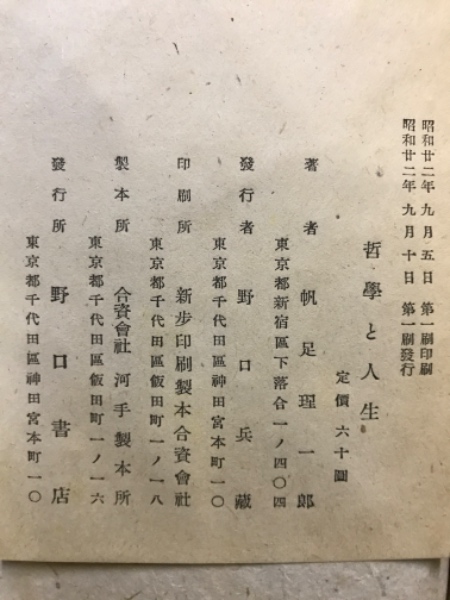 昭和廿二年九月五日 第一刷印刷
昭和廿二年九月十日 第一刷發行
哲學と人生
定價 六十圓
著者 帆足理一郎
東京都新宿區下落合一ノ四〇四
發行者 野口兵藏
東京都千代田區神田宮本町一〇
印刷所 新步印刷製本合資會社
東京都千代田區飯田町一ノ一八
製本所 合資會社 河手製本所
東京都千代田區飯田町一ノ一六
發行所 野口書店
東京都千代田區神田宮本町一〇